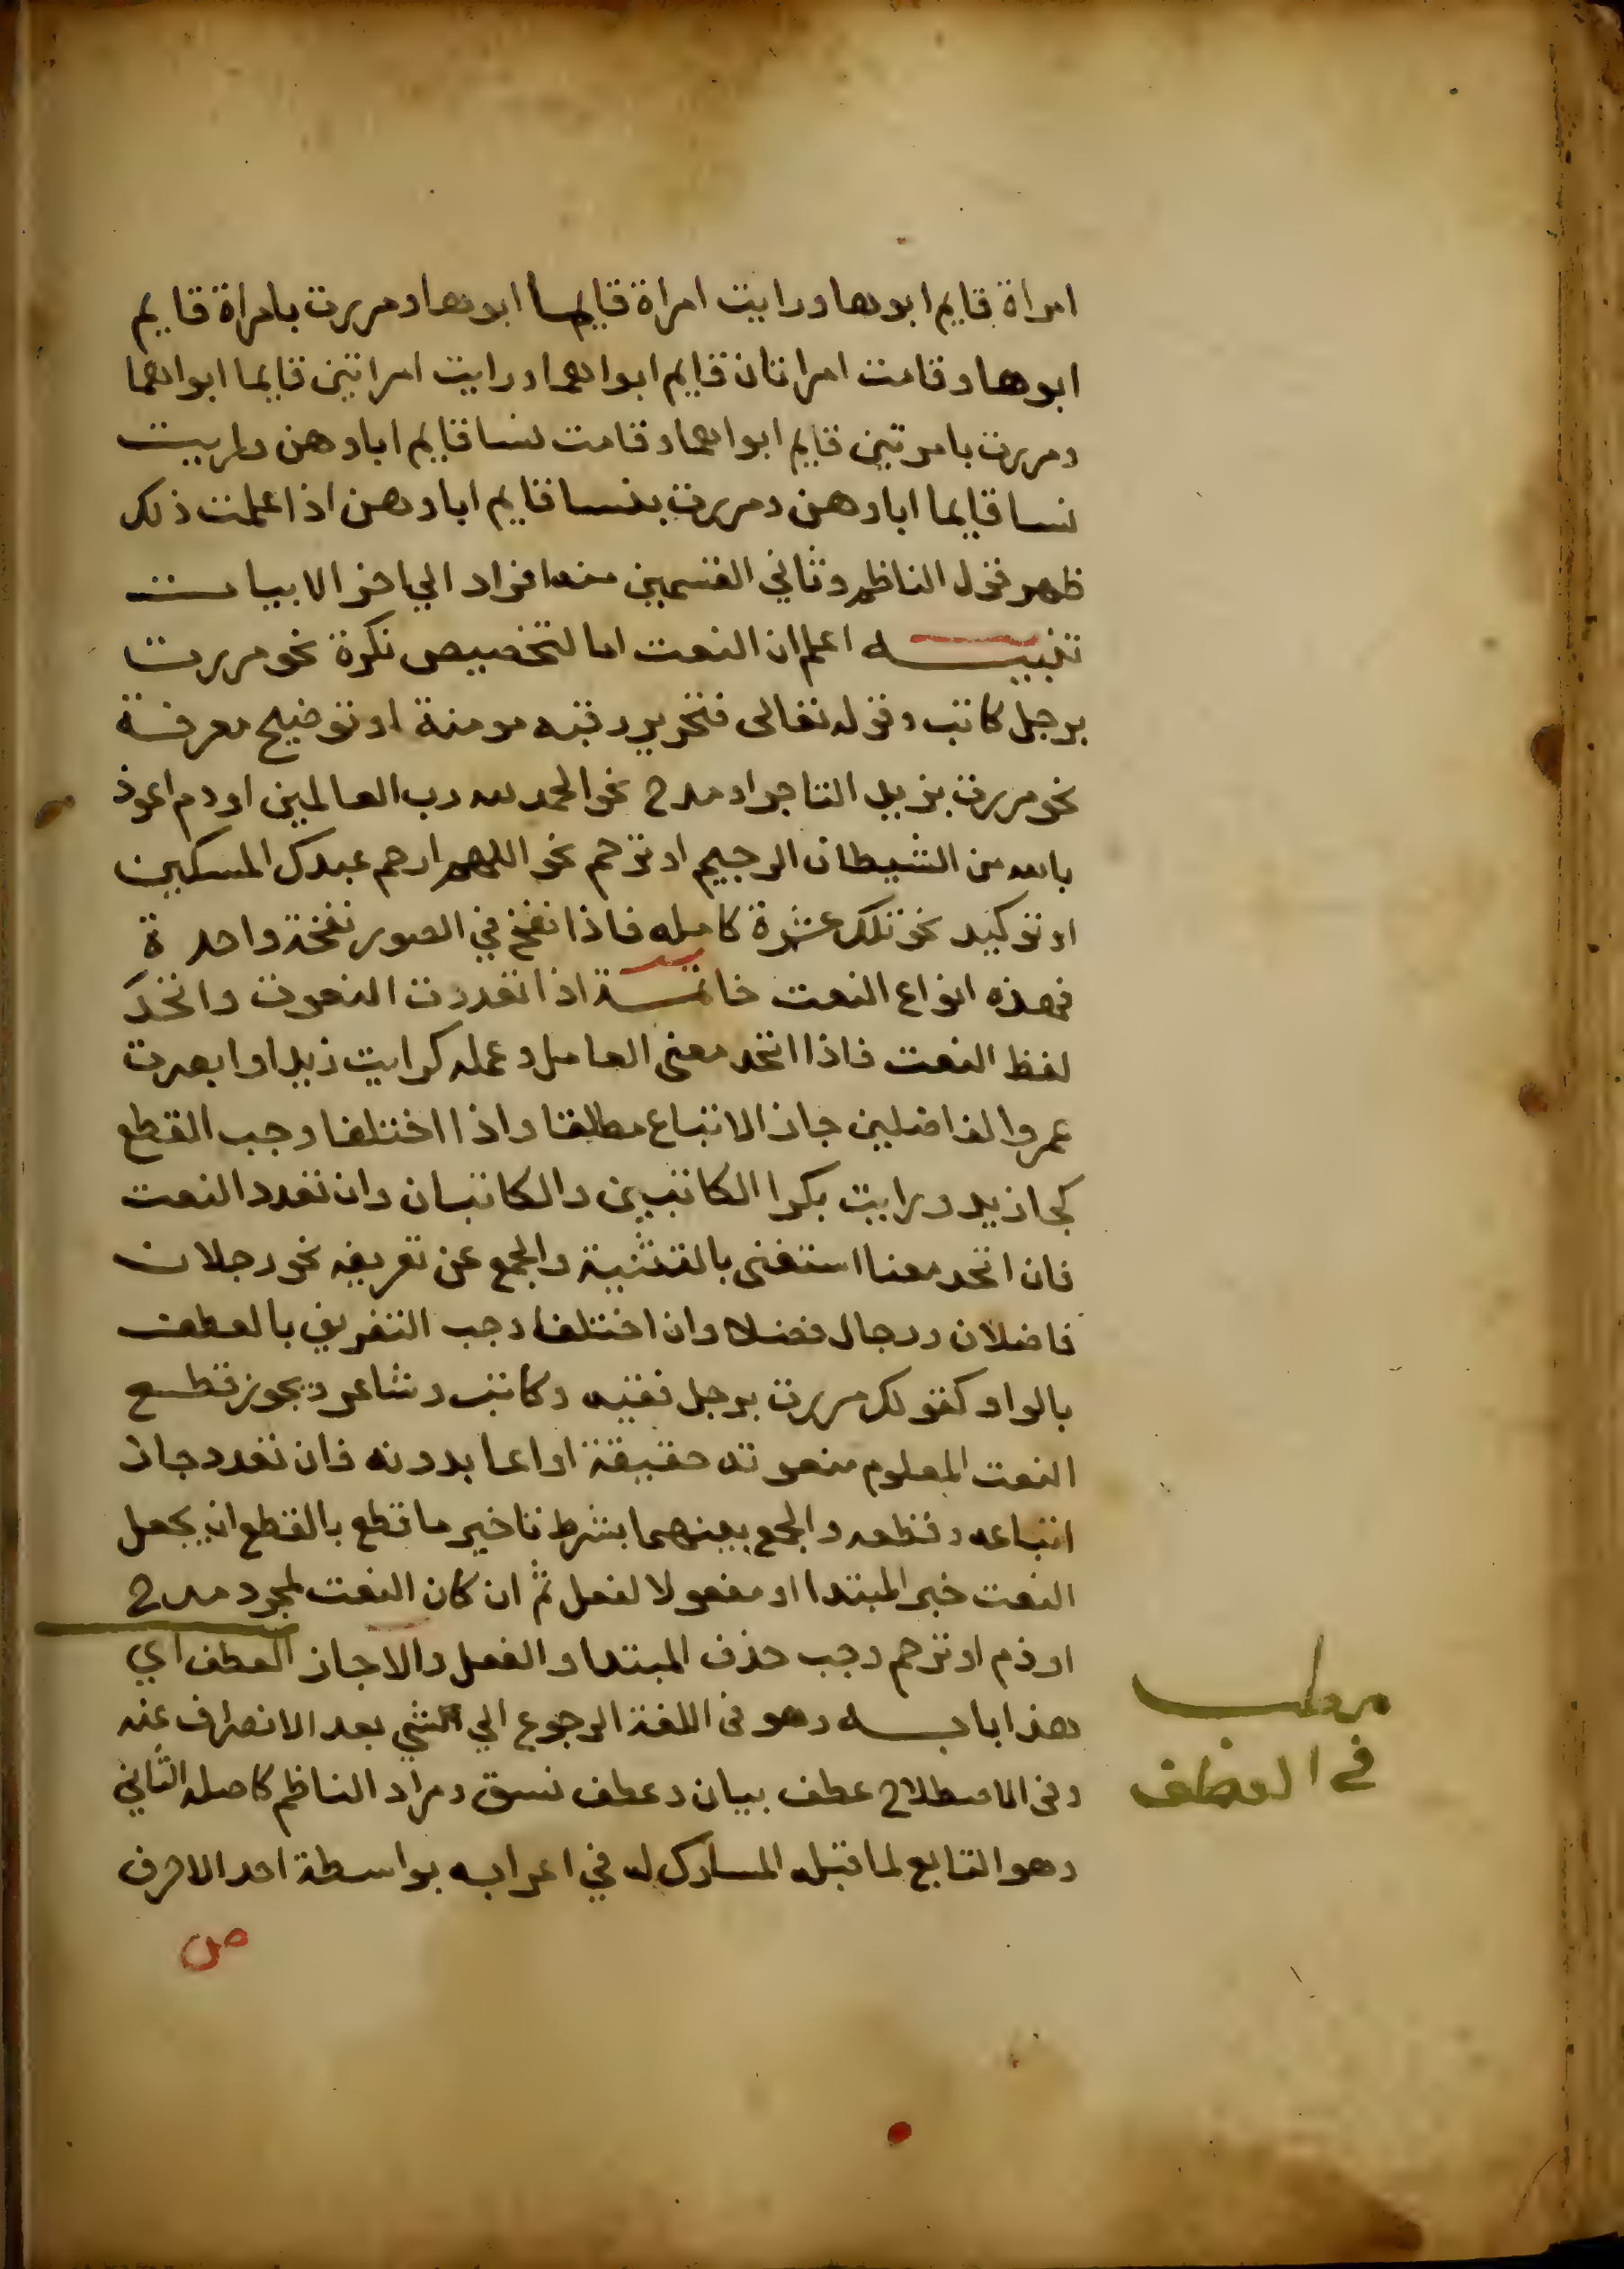 امراة قايم ابوها ورايت امراة قايما ابوها ومررت بامراة قايم
ابوها وقامت امراتان قايم ابواهما ورايت امراتين قايما ابواهما
ومررت بامرتين قايم ابواهما وقامت نسا قايم اباوهن ورايت
نسا قايما اباوهن ومررت بنسا قايم اباوهن اذا علمت ذلك
ظهر قول الناظم وثاني القسمين منه افراد الي اخر الابيات
تنبيه اعلم ان النعت اما لتخصيص نكرة نحو مررت
برجل كاتب وقوله تعالى فتحرير رقبه مومنة او توضيح معرفة
نحو مررت بزيد التاجر او مدح نحو الحمد لله رب العالمين او ذم اعوذ
بالله من الشيطان الرجيم او ترحم نحو اللهم ارحم عبدك المسكين
او توكيد نحو تلك عشرة كامله فاذا نفخ في الصور نفخة واحدة
فهذه انواع النعت خاتمة اذا تعددت النعوت واتحد
لفظ النعت فاذا اتحد معنى العامل وعمله كرايت زيدا وابصرت
عمروا الفاضلين جاز الاتباع مطلقا واذا اختلفا وجب القطع
كجا زيد ورايت بكرا الكاتبين والكاتبان وان تعدد النعت
فان اتحد معنا استغنى بالتثنية والجمع عن تفريقه نحو رجلان
فاضلان ورجال فضلا وان اختلفا وجب التفريق بالعطف
بالواو كقولك مررت برجل فقيه وكاتب وشاعر ويجوز قطع
النعت المعلوم منعوته حقيقة او ادعا بدونه فان تعدد جاز
اتباعه وقطعه والجمع بينهما بشرط تاخير ما قطع بالقطع ان يجعل
النعت خبر المبتدا او مفعولا لفعل ثم ان كان النعت لمجرد مدح
او ذم او ترحم وجب حذف المبتدا والفعل والا جاز العطف اي
هذا بابه وهو فى اللغة الرجوع الي الشي بعد الانصراف عنه
وفى الاصطلاح عطف بيان وعطف نسق ومراد الناظم كاصله الثاني
وهو التابع لما قبله المشارك له في اعرابه بواسطة احد الاحرف
ص
مطلب
في العطف